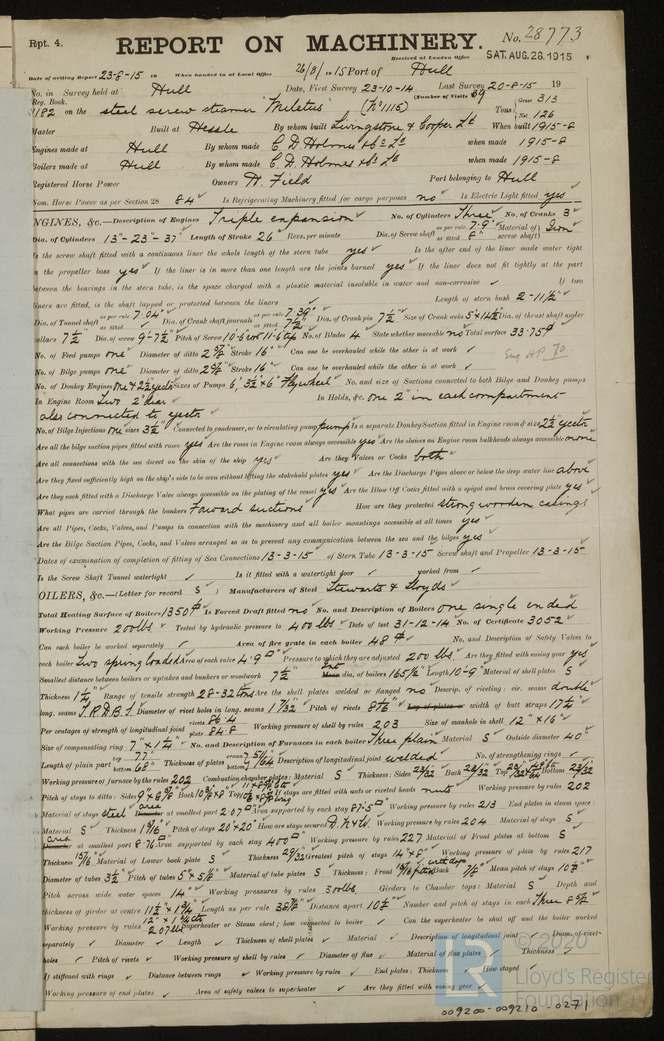 Rpt. 4.
REPORT ON MACHINERY.
No. 28773
Received at London Office
SAT. AUG. 28 1915
Date of writing Report 23-8-15 19 When handed in at Local Office 26/8/ 1915 Port of Hull
No. in Survey held at Hull Date, First Survey 23-10-14 Last Survey 20-8-15 19
Reg. Book. (Number of Visits 89
1182 on the steel screw steamer "Miletus" (No 1115) Tons Gross 313 Net 126
Master Built at Hessle By whom built Livingstone & Cooper Ld When built 1915-8
Engines made at Hull By whom made C. D. Holmes & Co Ld when made 1915-8
Boilers made at Hull By whom made C. D. Holmes & Co Ld when made 1915-8
Registered Horse Power Owners H. Field Port belonging to Hull
Nom. Horse Power as per Section 28 84 Is Refrigerating Machinery fitted for cargo purposes no Is Electric Light fitted yes
ENGINES, &c.—Description of Engines Triple expansion No. of Cylinders Three No. of Cranks 3
Dia. of Cylinders 13"-23"-37" Length of Stroke 26" Revs. per minute Dia. of Screw shaft as per rule 7.9" as fitted 8" Material of screw shaft Iron
Is the screw shaft fitted with a continuous liner the whole length of the stern tube yes Is the after end of the liner made water tight
in the propeller boss yes If the liner is in more than one length are the joints burned yes If the liner does not fit tightly at the part
between the bearings in the stern tube, is the space charged with a plastic material insoluble in water and non-corrosive If two
liners are fitted, is the shaft lapped or protected between the liners Length of stern bush 2'-11½"
Dia. of Tunnel shaft as per rule 7.04" as fitted Dia. of Crank shaft journals as per rule 7.39" as fitted 7½" Dia. of Crank pin 7½" Size of Crank webs 5"x14½" Dia. of thrust shaft under
collars 7½" Dia. of screw 9'-7½" Pitch of Screw No. of Blades 4 State whether moveable no Total surface 33.75
No. of Feed pumps one Diameter of ditto 2⅝" Stroke 16" Can one be overhauled while the other is at work
No. of Bilge pumps one Diameter of ditto 2⅝" Stroke 16" Can one be overhauled while the other is at work
No. of Donkey Engines one & 2½" ejector Sizes of Pumps 6", 3½" x 6" Flywheel No. and size of Suctions connected to both Bilge and Donkey pumps
In Engine Room Two 2" dia. In Holds, &c. one 2" in each compartment
also connected to ejector
No. of Bilge Injections one sizes 3½" Connected to condenser, or to circulating pump pump Is a separate Donkey Suction fitted in Engine room & size 2½" ejector
Are all the bilge suction pipes fitted with roses yes Are the roses in Engine room always accessible yes Are the sluices on Engine room bulkheads always accessible none
Are all connections with the sea direct on the skin of the ship yes Are they Valves or Cocks both
Are they fixed sufficiently high on the ship's side to be seen without lifting the stokehold plates yes Are the Discharge Pipes above or below the deep water line above
Are they each fitted with a Discharge Valve always accessible on the plating of the vessel yes Are the Blow Off Cocks fitted with a spigot and brass covering plate yes
What pipes are carried through the bunkers Forward suctions How are they protected strong wooden casings
Are all Pipes, Cocks, Valves, and Pumps in connection with the machinery and all boiler mountings accessible at all times yes
Are the Bilge Suction Pipes, Cocks, and Valves arranged so as to prevent any communication between the sea and the bilges yes
Dates of examination of completion of fitting of Sea Connections 13-3-15 of Stern Tube 13-3-15 Screw shaft and Propeller 13-3-15
Is the Screw Shaft Tunnel watertight Is it fitted with a watertight door worked from
BOILERS, &c.—(Letter for record S) Manufacturers of Steel Stewarts & Lloyds
Total Heating Surface of Boilers 1350 Is Forced Draft fitted no No. and Description of Boilers one single ended
Working Pressure 200 lbs Tested by hydraulic pressure to 400 lbs Date of test 31-12-14 No. of Certificate 3052
Can each boiler be worked separately Area of fire grate in each boiler 48 No. and Description of Safety Valves to
each boiler Two spring loaded Area of each valve 4.9 Pressure to which they are adjusted 200 lbs. Are they fitted with easing gear yes
Smallest distance between boilers or uptakes and bunkers or woodwork 7½" Int dia. of boilers 165½" Length 10'-9" Material of shell plates S
Thickness 1¼" Range of tensile strength 28-32 tons Are the shell plates welded or flanged no Descrip. of riveting: cir. seams double
long. seams T.R.D.B.S. Diameter of rivet holes in long. seams 1 7/32" Pitch of rivets 8⅛" Lap of plates or width of butt straps 17½"
Per centages of strength of longitudinal joint rivets 86.4 plate 84.8 Working pressure of shell by rules 203 Size of manhole in shell 12" x 16"
Size of compensating ring 7" x 1¼" No. and Description of Furnaces in each boiler Three plain Material S Outside diameter 40"
Length of plain part top 77" bottom 68" Thickness of plates crown bottom Description of longitudinal joint welded No. of strengthening rings
Working pressure of furnace by the rules 202 Combustion chamber plates: Material S Thickness: Sides 23/32 Back 22/32 Top Bottom 23/32
Pitch of stays to ditto: Sides Back Top If stays are fitted with nuts or riveted heads nuts Working pressure by rules 202
Material of stays steel area at smallest part 2.07 Area supported by each stay 87.5 Working pressure by rules 213 End plates in steam space:
Material S Thickness Pitch of stays 20" x 20" How are stays secured D.N.&W. Working pressure by rules 204 Material of stays S
area at smallest part 8.76 Area supported by each stay 400 Working pressure by rules 227 Material of Front plates at bottom S
Thickness 15/16 Material of Lower back plate S Thickness 29/32 Greatest pitch of stays 14" x 8" Working pressure of plate by rules 217
Diameter of tubes 3½" Pitch of tubes 5" x 5⅛" Material of tube plates S Thickness: Front Back ⅞" Mean pitch of stays 10⅛"
Pitch across wide water spaces 14" Working pressures by rules 300 lbs. Girders to Chamber tops: Material S Depth and
thickness of girder at centre 11½" x 1¾" Length as per rule Distance apart 10½" Number and pitch of stays in each Three 8⅝"
Working pressure by rules 207 lbs Superheater or Steam chest; how connected to boiler Can the superheater be shut off and the boiler worked
separately Diameter Length Thickness of shell plates Material Description of longitudinal joint Diam. of rivet
holes Pitch of rivets Working pressure of shell by rules Diameter of flue Material of flue plates Thickness
If stiffened with rings Distance between rings Working pressure by rules End plates: Thickness How stayed
Working pressure of end plates Area of safety valves to superheater Are they fitted with easing gear
LR
© 2020
Lloyd's Register
Foundation
009200-009210-0271